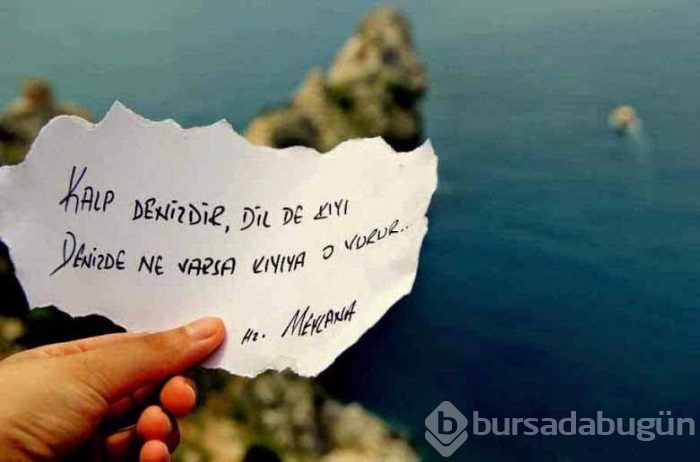 KALP DENİZDİR, DİL DE KIYI
DENİZDE NE VARSA KIYIYA O VURUR..
Hz. MEVLANA
b bursadabugün